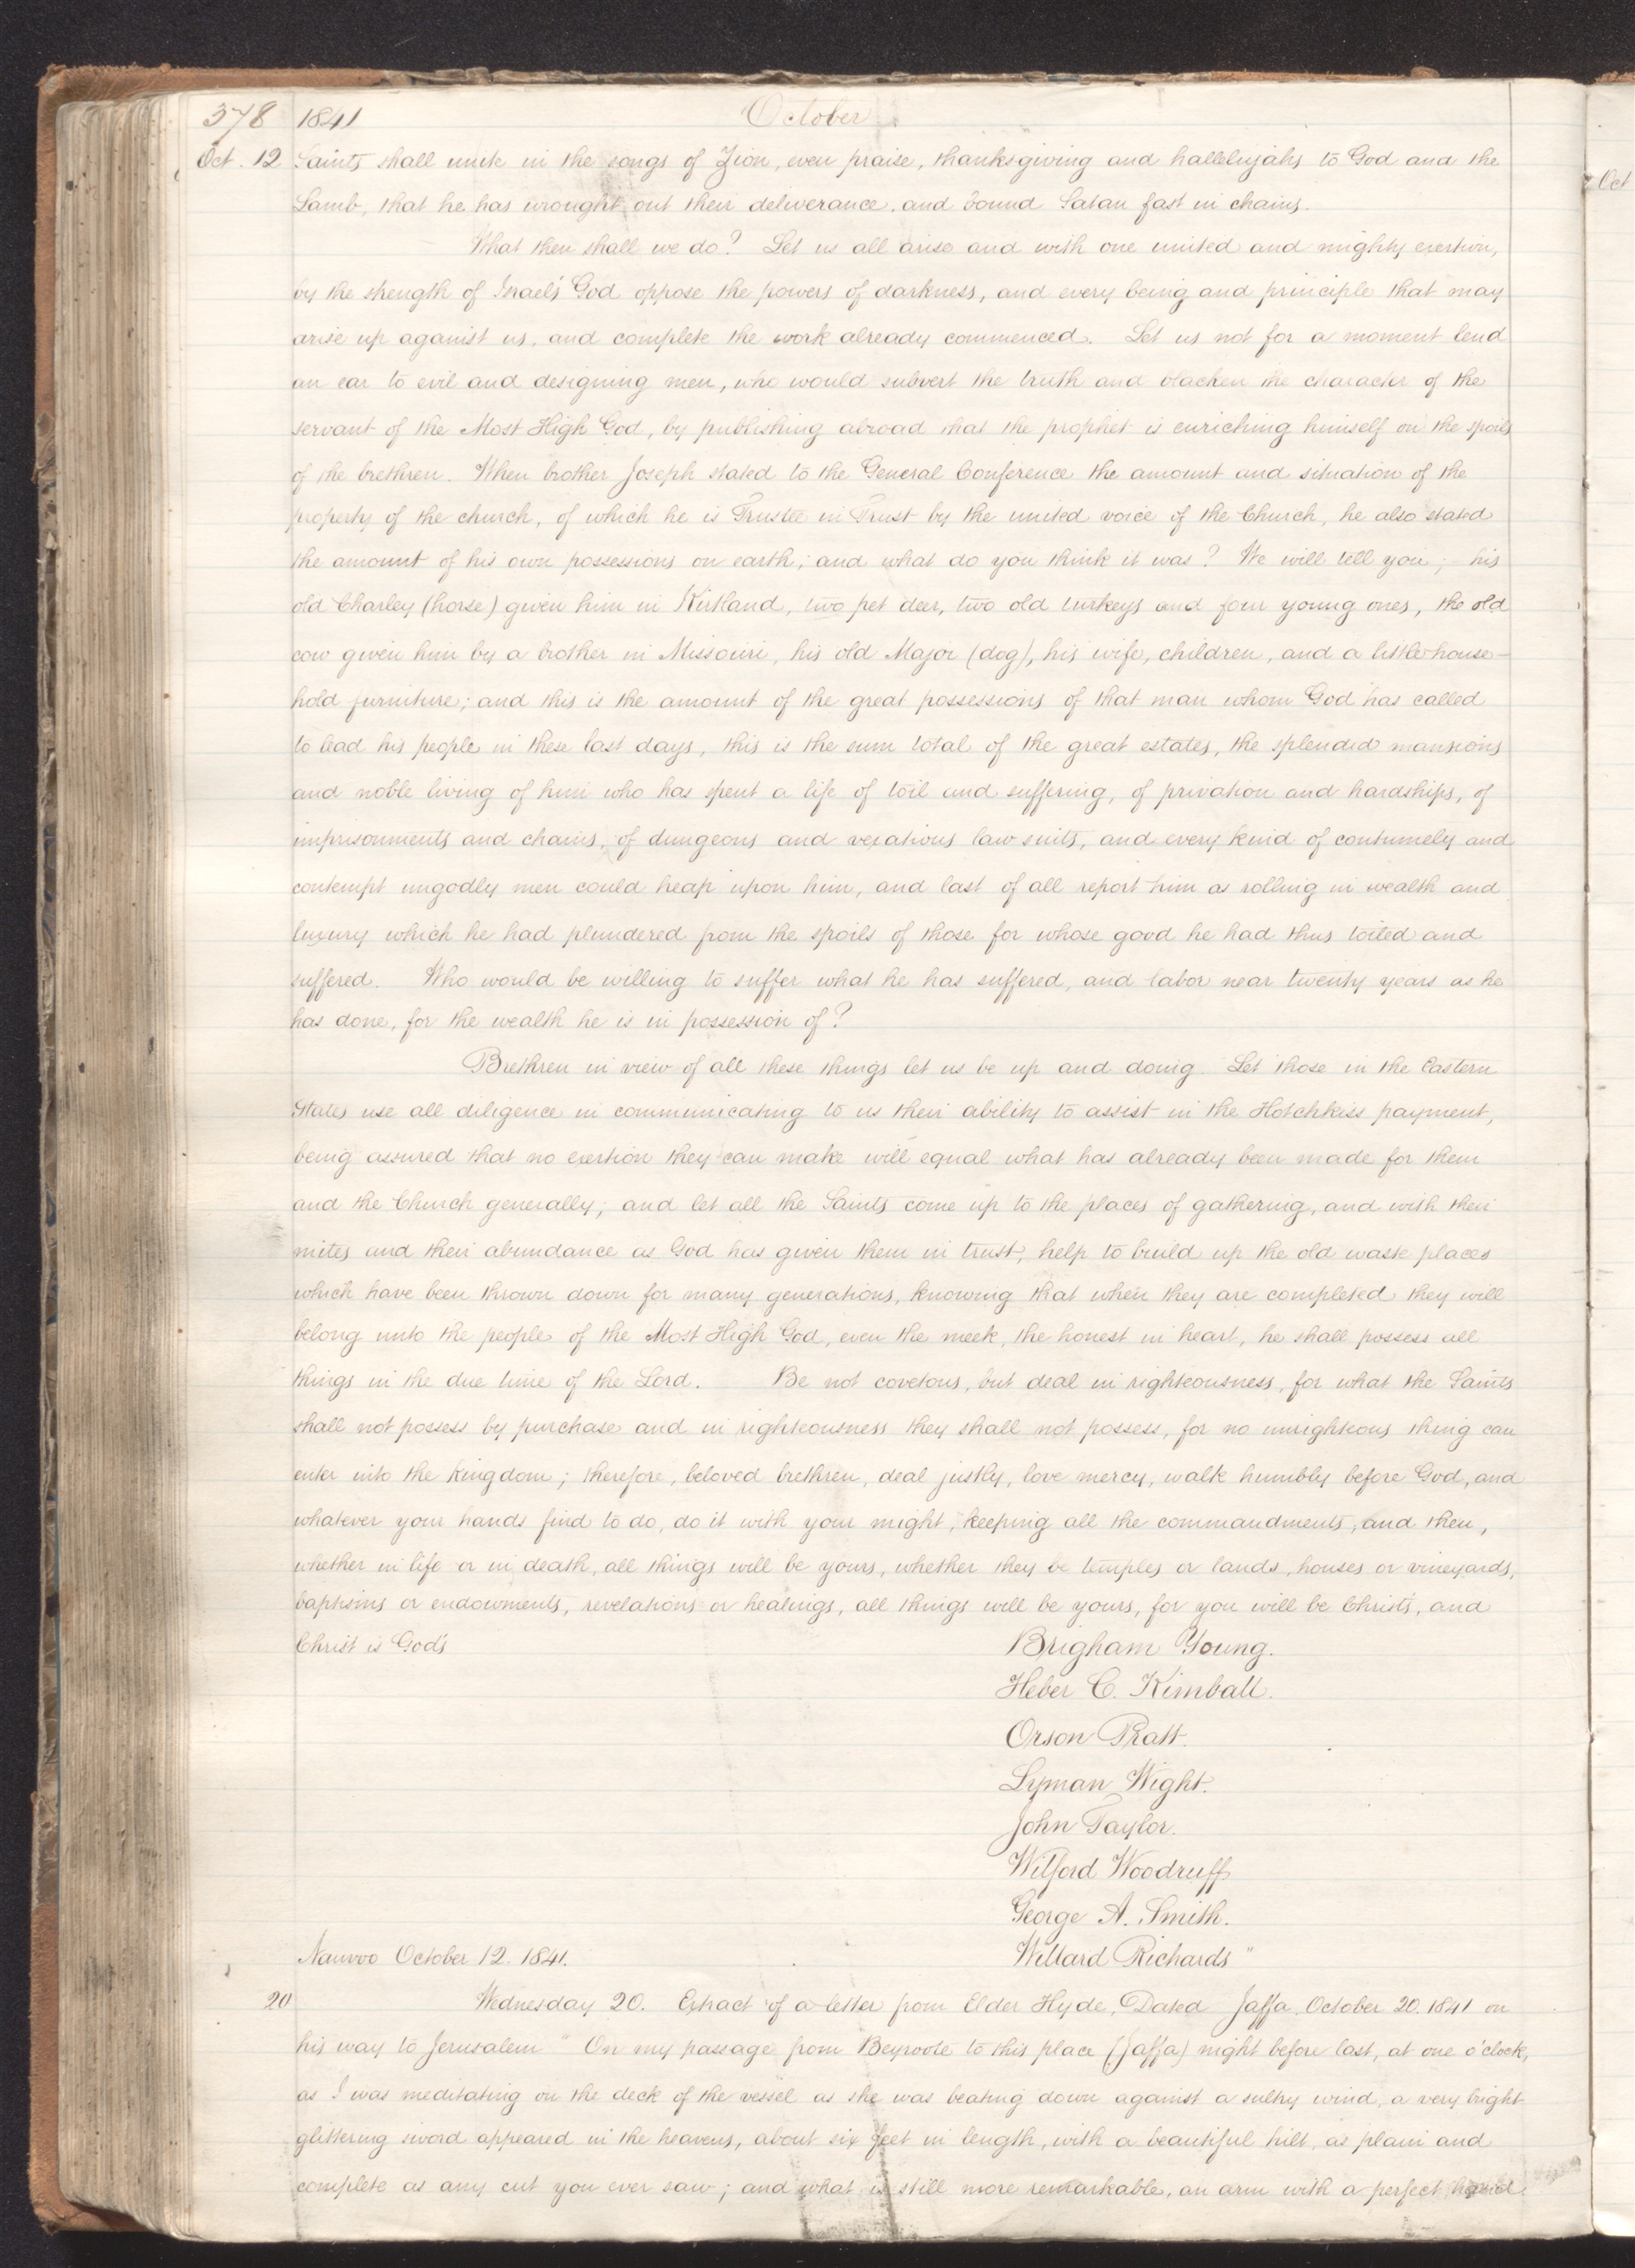 378 1841 October
Oct. 12 Saints shall unite in the songs of Zion, even praise, thanksgiving and hallelujahs to God and the
Lamb, that he has wrought out their deliverance, and bound Satan fast in chains.
What then shall we do? Let us all arise and with one united and mighty exertion,
by the strength of Israel's God oppose the powers of darkness, and every being and principle that may
arise up against us, and complete the work already commenced. Let us not for a moment lend
an ear to evil and designing men, who would subvert the truth and blacken the character of the
servant of the Most High God, by publishing abroad that the prophet is enriching himself on the spoils
of the brethren. When brother Joseph stated to the General Conference the amount and situation of the
property of the church, of which he is Trustee in Trust by the united voice of the Church, he also stated
the amount of his own possessions on earth; and what do you think it was? We will tell you; his
old Charley (horse) given him in Kirtland, two pet deer, two old turkeys and four young ones, the old
cow given him by a brother in Missouri, his old Major (dog), his wife, children, and a little house-
hold furniture; and this is the amount of the great possessions of that man whom God has called
to lead his people in these last days, this is the sum total of the great estates, the splendid mansions
and noble living of him who has spent a life of toil and suffering, of privation and hardships, of
imprisonments and chains, of dungeons and vexatious law suits, and every kind of contumely and
contempt ungodly men could heap upon him, and last of all report him as rolling in wealth and
luxury which he had plundered from the spoils of those for whose good he had thus toiled and
suffered. Who would be willing to suffer what he has suffered, and labor near twenty years as he
has done, for the wealth he is in possession of?
Brethren in view of all these things let us be up and doing. Let those in the Eastern
States use all diligence in communicating to us their ability to assist in the Hotchkiss payment,
being assured that no exertion they can make will equal what has already been made for them
and the Church generally; and let all the Saints come up to the places of gathering, and with their
mites and their abundance as God has given them in trust, help to build up the old waste places
which have been thrown down for many generations, knowing that when they are completed they will
belong unto the people of the Most High God, even the meek, the honest in heart, he shall possess all
things in the due time of the Lord. Be not covetous, but deal in righteousness, for what the Saints
shall not possess by purchase and in righteousness they shall not possess, for no unrighteous thing can
enter into the kingdom; therefore, beloved brethren, deal justly, love mercy, walk humbly before God, and
whatever your hands find to do, do it with your might, keeping all the commandments, and then,
whether in life or in death, all things will be yours, whether they be temples or lands, houses or vineyards,
baptisms or endowments, revelations or healings, all things will be yours, for you will be Christ's, and
Christ is God's Brigham Young.
Heber C. Kimball.
Orson Pratt.
Lyman Wight.
John Taylor.
Wilford Woodruff
George A. Smith.
Nauvoo October 12. 1841. Willard Richards"
20 Wednesday 20. Extract of a letter from Elder Hyde, Dated Jaffa, October 20. 1841 on
his way to Jerusalem "On my passage from Beyroote to this place (Jaffa) night before last, at one o'clock,
as I was meditating on the deck of the vessel as she was beating down against a sultry wind, a very bright
glittering sword appeared in the heavens, about six feet in length, with a beautiful hilt, as plain and
complete as any cut you ever saw; and what is still more remarkable, an arm with a perfect hand
Oct